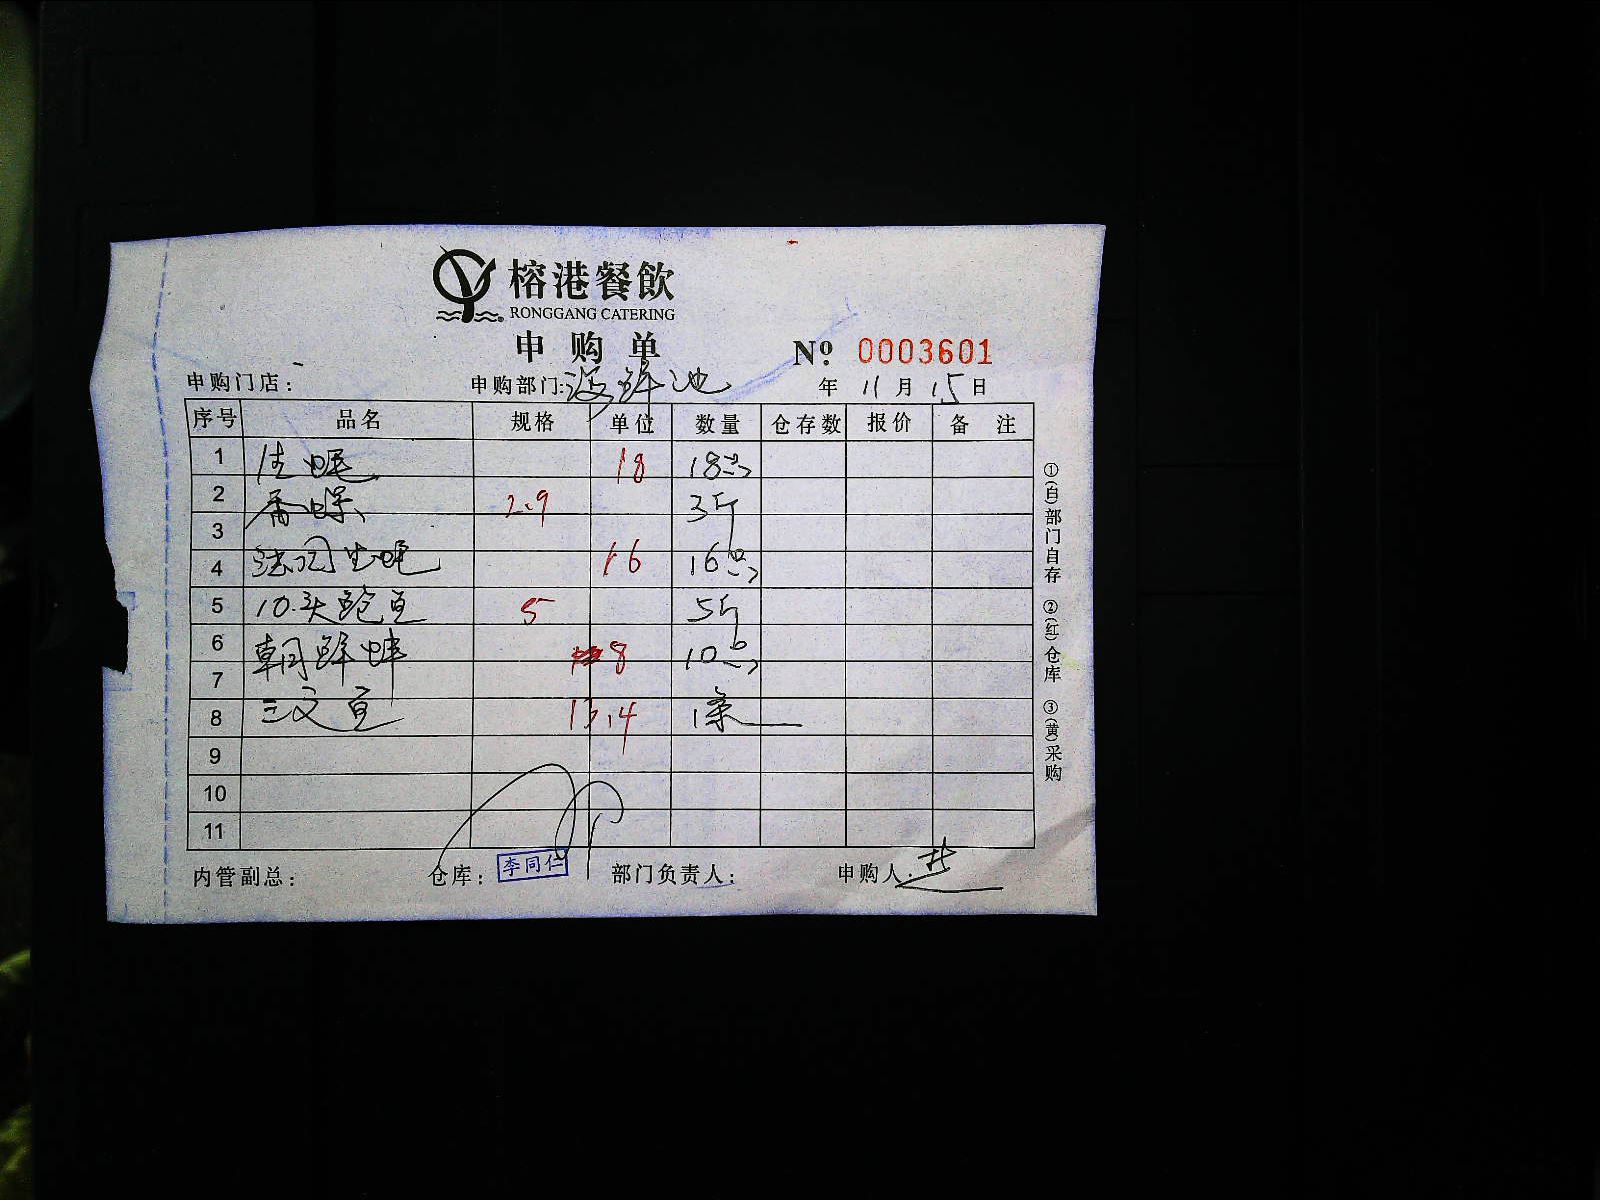 榕港餐飲
RONGGANG CATERING
申购单
№ 0003601
申购门店: 申购部门: 海鲜池 年 11 月 15 日
序号 品名 规格 单位 数量 仓存数 报价 备 注
1 生蚝 18 18只
2 香螺 2.9 3斤
3
4 法国生蚝 16 16只
5 10头鲍鱼 5 5斤
6 朝鲜蚌 8 10只
7
8 三文鱼 13.4 1条
9
10
11
内管副总: 仓库: 李同仁 部门负责人: 申购人:
①(白)部门自存 ②(红)仓库 ③(黄)采购